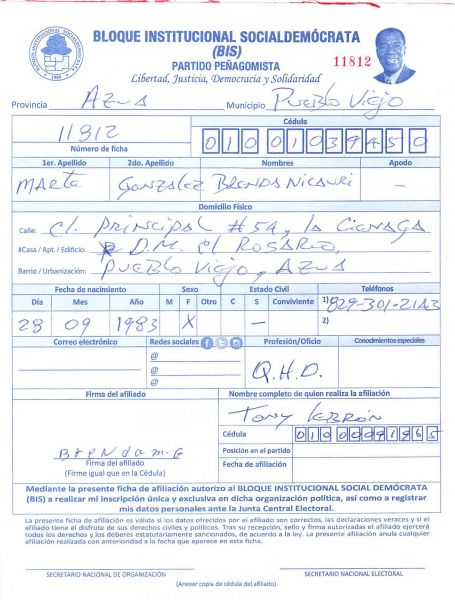 BLOQUE INSTITUCIONAL SOCIALDEMÓCRATA
(BIS)
PARTIDO PEÑAGOMISTA
11812
Libertad, Justicia, Democracia y Solidaridad
Provincia AZUA Municipio PUEBLO VIEJO
11812
Número de ficha
Cédula
01001039450
1er. Apellido 2do. Apellido Nombres Apodo
MARTE GONZALEZ BRENDA NICAURI —
Domicilio Físico
Calle: C/. PRINCIPAL #54, LA CIENAGA
#Casa / Apt. / Edificio: D.M. EL ROSARIO,
Barrio / Urbanización: PUEBLO VIEJO, AZUA
Fecha de nacimiento Sexo Estado Civil Teléfonos
Día Mes Año M F Otro C S Conviviente 1) 829-301-2143
28 09 1983 X — 2)
Correo electrónico Redes sociales Profesión/Oficio Conodmientos especiales
@
@
@
Q.H.D.
Firma del afiliado Nombre completo de quien realiza la afiliación
TONY LEBRÓN
Cédula
Brenda m.G
Firma del afiliado
(Firme igual que en la Cédula)
Posición en el partido
Fecha de afiliación
Mediante la presente ficha de afiliación autorizo al BLOQUE INSTITUCIONAL SOCIAL DEMÓCRATA
(BIS) a realizar mi inscripción única y exclusiva en dicha organización política, así como a registrar
mis datos personales ante la Junta Central Electoral.
La presente ficha de afiliación es válida si los datos ofrecidos por el afiliado son correctos, las declaraciones veraces y si el
afiliado tiene el disfrute de sus derechos civiles y políticos. Tras su recepción, sello y firma autorizadas el afiliado ejercerá
todos los derechos y los deberes estatutariamente sancionados, de acuerdo a la ley. La presente afiliación anula cualquier
afiliación realizada con anterioridad a la fecha que aparece en esta ficha.
SECRETARIO NACIONAL DE ORGANIZACIÓN SECRETARIO NACIONAL ELECTORAL
(Anexar copia de cédula del afiliado)